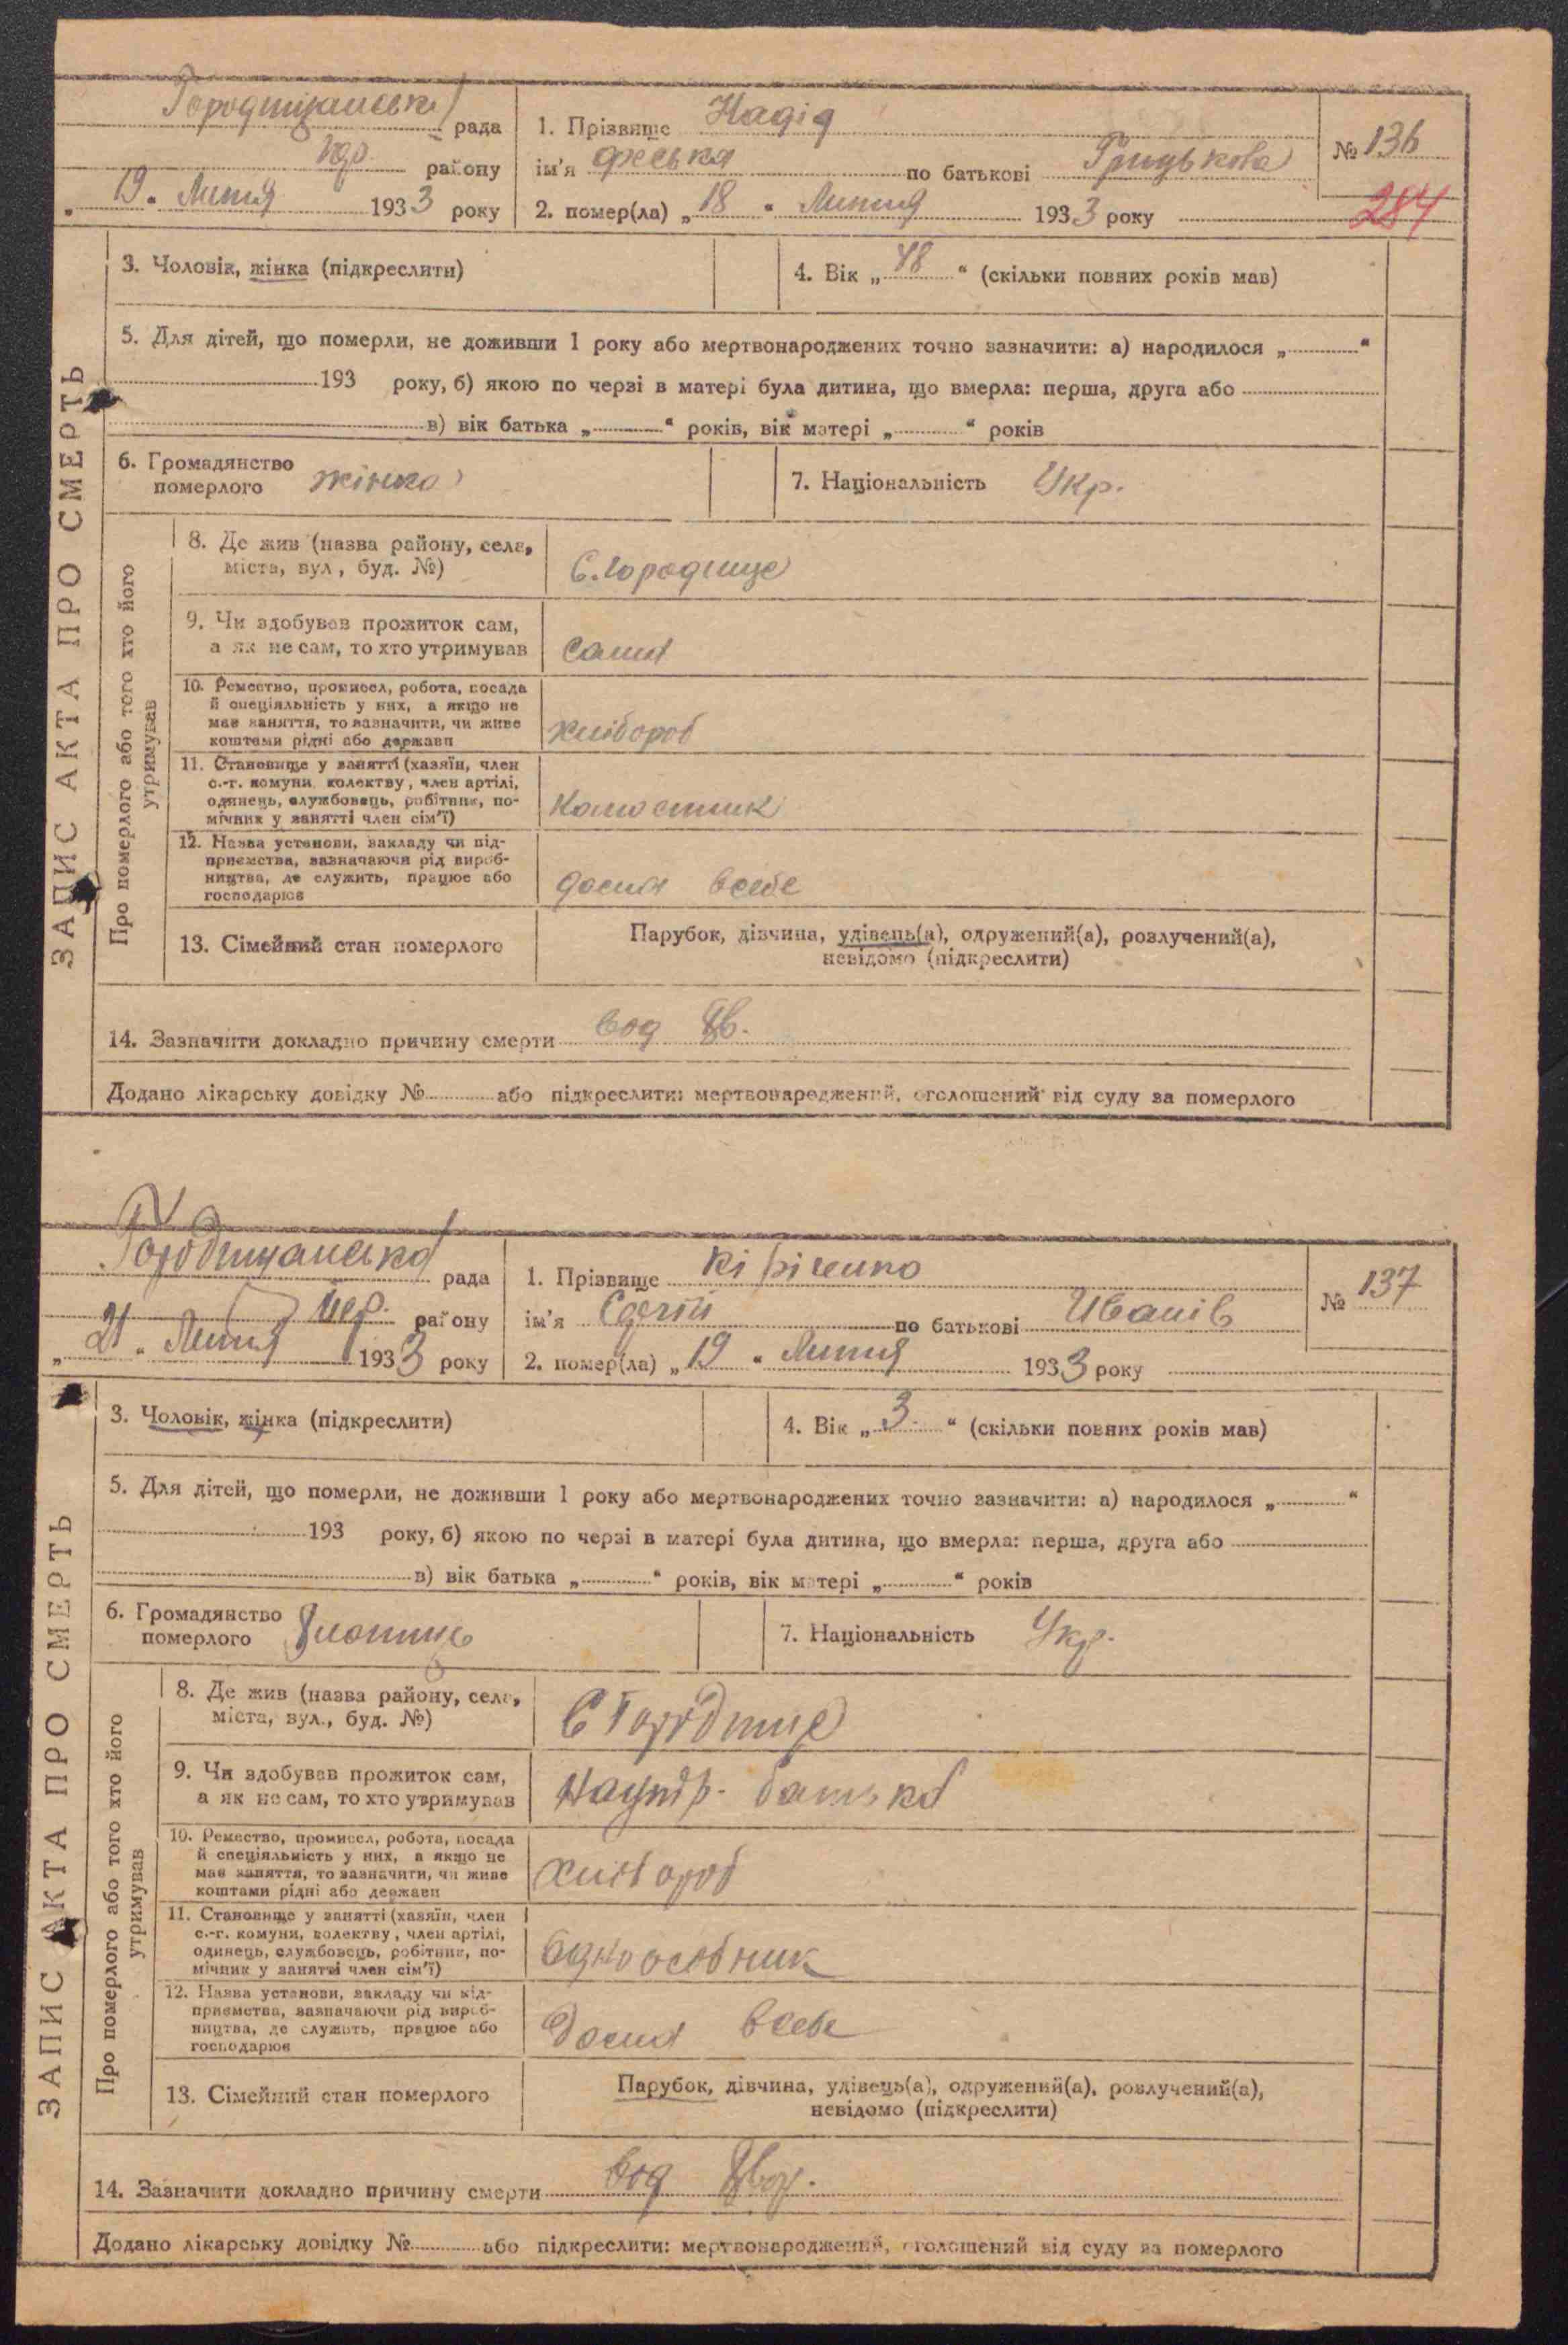 ЗАПИС АКТА ПРО СМЕРТЬ
Городищанська рада
району
„ 19 " Липня 1933 року
1. Прізвище Надід
ім'я Феська по батькові Грицькова
2. помер(ла) „ 18 " Липня 1933 року
№ 136
284
3. Чоловік, жінка (підкреслити)
4. Вік „ 48 " (скільки повних років мав)
5. Для дітей, що померли, не доживши 1 року або мертвонароджених точно зазначити: а) народилося „ "
193 року, б) якою по черзі в матері була дитина, що вмерла: перша, друга або
в) вік батька „ " років, вік матері „ " років
6. Громадянство
померлого жінка
7. Національність Укр.
Про померлого або того хто його
утримував
8. Де жив (назва району, села,
міста, вул., буд. №)
С. Городище
9. Чи здобував прожиток сам,
а як не сам, то хто утримував
сама
10. Ремество, промисел, робота, посада
й спеціяльність у них, а якщо не
мав заняття, то зазначити, чи живе
коштами рідні або держави
хлібороб
11. Становище у занятті (хазяїн, член
с.-г. комуни, колективу, член артілі,
одинець, службовець, робітник, по-
мічник у занятті член сім'ї)
12. Назва установи, закладу чи під-
приємства, зазначаючи рід вироб-
ництва, де служить, працює або
господарює
дома всебе
13. Сімейний стан померлого
Парубок, дівчина, удівець(а), одружений(а), розлучений(а),
невідомо (підкреслити)
14. Зазначити докладно причину смерти
Додано лікарську довідку № або підкреслити: мертвонароджений, оголошений від суду за померлого
ЗАПИС АКТА ПРО СМЕРТЬ
Городищанська рада
району
„ 21 " Липня 1933 року
1. Прізвище Кіріченко
ім'я Сергій по батькові Иванів
2. помер(ла) „ 19 " Липня 1933 року
№ 137
3. Чоловік, жінка (підкреслити)
4. Вік „ 3 " (скільки повних років мав)
5. Для дітей, що померли, не доживши 1 року або мертвонароджених точно зазначити: а) народилося „ "
193 року, б) якою по черзі в матері була дитина, що вмерла: перша, друга або
в) вік батька „ " років, вік матері „ " років
6. Громадянство
померлого хлопиць
7. Національність Укр.
Про померлого або того хто його
утримував
8. Де жив (назва району, села,
міста, вул., буд. №)
С Городище
9. Чи здобував прожиток сам,
а як не сам, то хто утримував
батька
10. Ремество, промисел, робота, посада
й спеціяльність у них, а якщо не
мав заняття, то зазначити, чи живе
коштами рідні або держави
хлібороб
11. Становище у занятті (хазяїн, член
с.-г. комуни, колективу, член артілі,
одинець, службовець, робітник, по-
мічник у занятті член сім'ї)
Одноосібник
12. Назва установи, закладу чи під-
приємства, зазначаючи рід вироб-
ництва, де служить, працює або
господарює
Дома всебе
13. Сімейний стан померлого
Парубок, дівчина, удівець(а), одружений(а), розлучений(а),
невідомо (підкреслити)
14. Зазначити докладно причину смерти
Додано лікарську довідку № або підкреслити: мертвонароджений, оголошений від суду за померлого